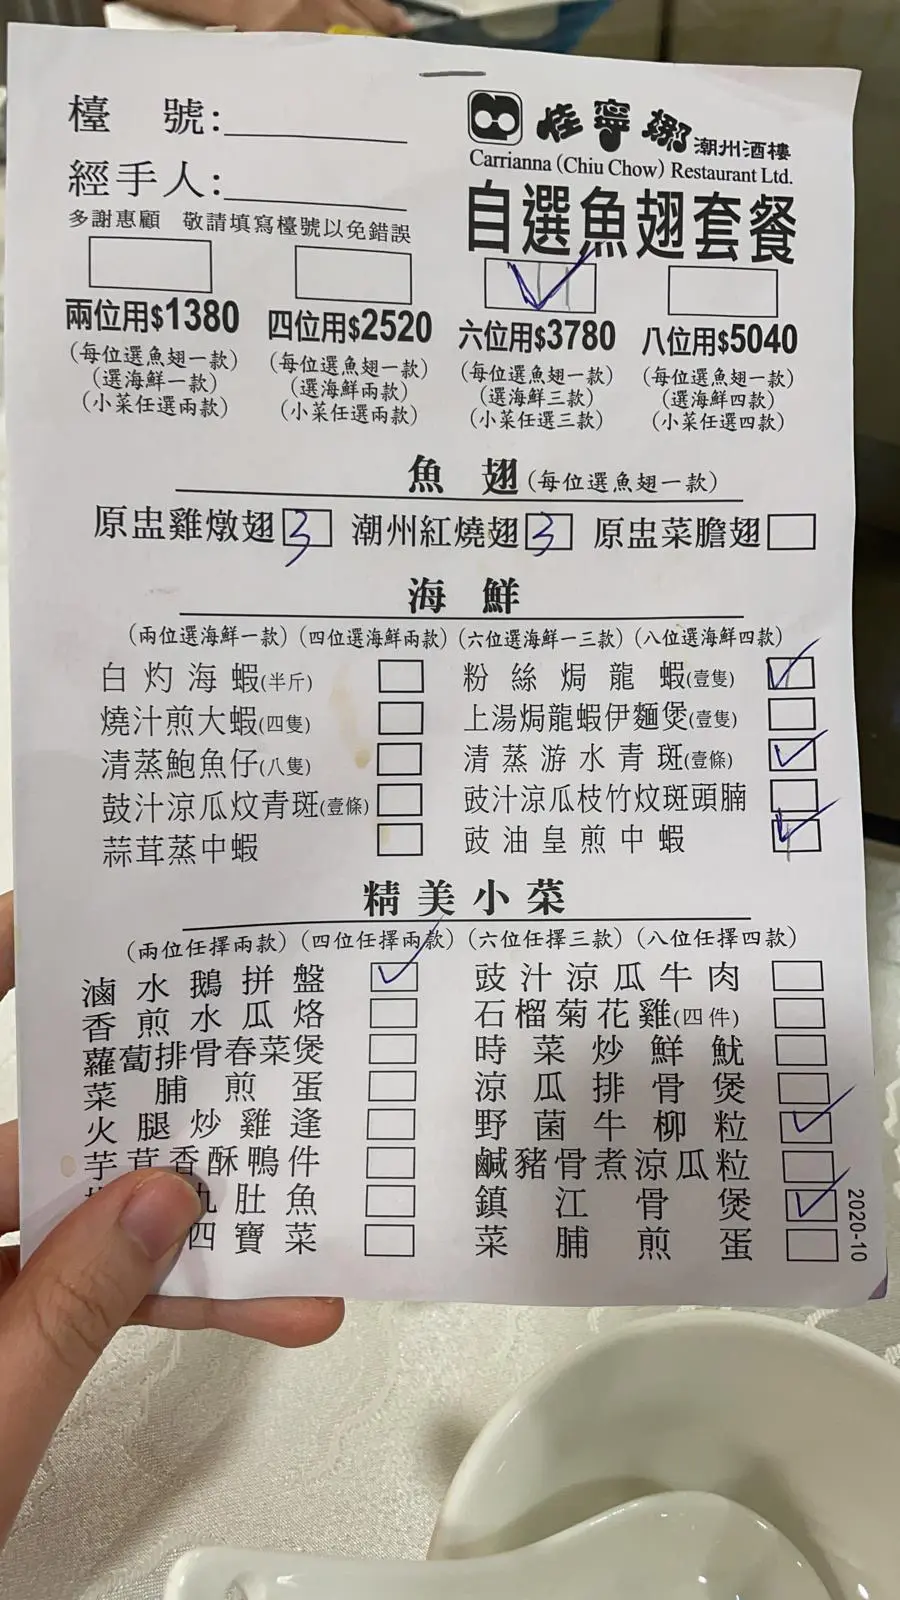 檯 號:
經手人:
多謝惠顧 敬請填寫檯號以免錯誤
佳寧娜 潮州酒樓
Carrianna (Chiu Chow) Restaurant Ltd.
自選魚翅套餐
兩位用$1380 四位用$2520 六位用$3780 八位用$5040
(每位選魚翅一款) (每位選魚翅一款) (每位選魚翅一款) (每位選魚翅一款)
(選海鮮一款) (選海鮮兩款) (選海鮮三款) (選海鮮四款)
(小菜任選兩款) (小菜任選兩款) (小菜任選三款) (小菜任選四款)
魚 翅 (每位選魚翅一款)
原盅雞燉翅 3 潮州紅燒翅 3 原盅菜膽翅
海 鮮
(兩位選海鮮一款) (四位選海鮮兩款) (六位選海鮮一三款) (八位選海鮮四款)
白灼海蝦(半斤) 粉絲焗龍蝦(壹隻)
燒汁煎大蝦(四隻) 上湯焗龍蝦伊麵煲(壹隻)
清蒸鮑魚仔(八隻) 清蒸游水青斑(壹條)
鼓汁涼瓜炆青斑(壹條) 豉汁涼瓜枝竹炆斑頭腩
蒜茸蒸中蝦 豉油皇煎中蝦
精美小菜
(兩位任擇兩款) (四位任擇兩款) (六位任擇三款) (八位任擇四款)
滷水鵝拼盤 豉汁涼瓜牛肉
香煎水瓜烙 石榴菊花雞(四件)
蘿蔔排骨春菜煲 時菜炒鮮魷
菜脯煎蛋 涼瓜排骨煲
火腿炒雞逢 野菌牛柳粒
芋茸香酥鴨件 鹹豬骨煮涼瓜粒
丸肚魚 鎮江骨煲
四寶菜 菜脯煎蛋
2020-10